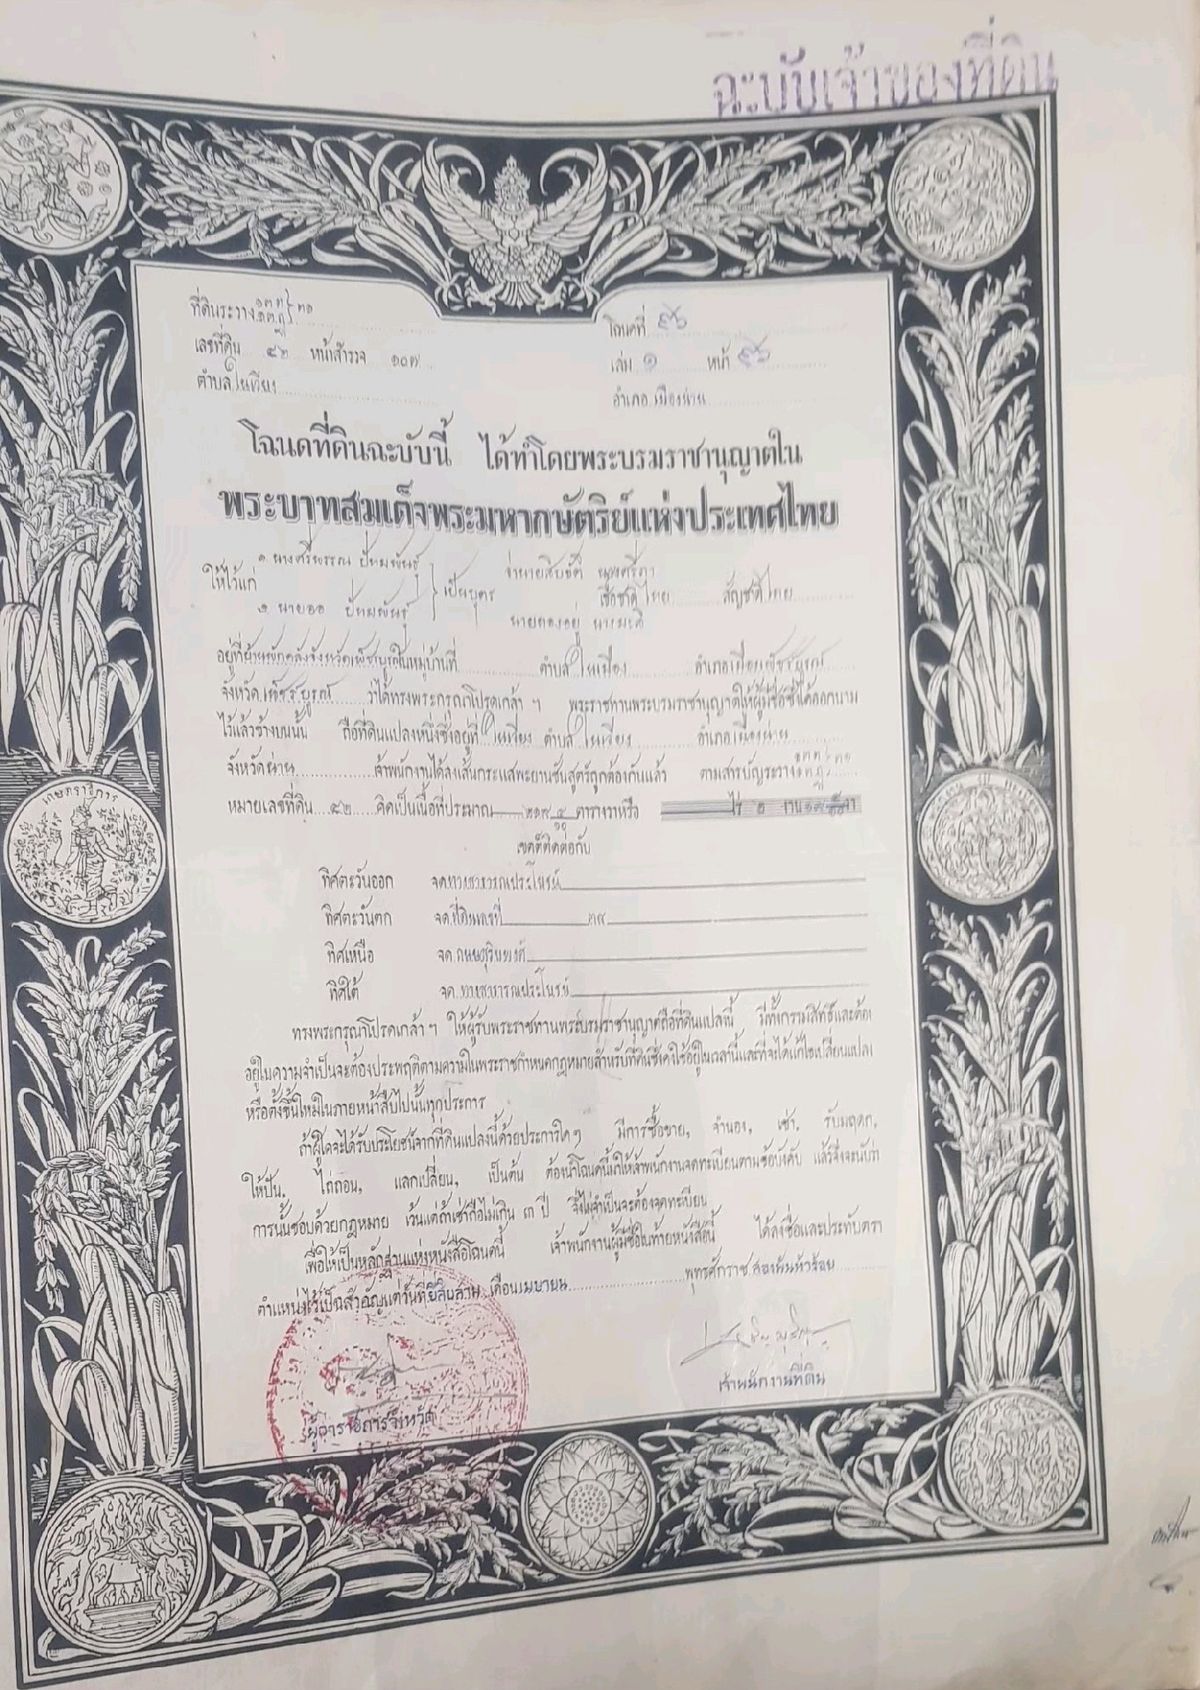 ฉะบับเจ้าของที่ดิน
ที่ดินระวาง
โฉนดที่
เลขที่ดิน ๕๒ หน้าสำรวจ ๑๐๗
เล่ม ๑ หน้า
ตำบลในเวียง
อำเภอเมืองน่าน
โฉนดที่ดินฉะบับนี้ ได้ทำโดยพระบรมราชานุญาตใน
พระบาทสมเด็จพระมหากษัตริย์แห่งประเทศไทย
ให้ไว้แก่
เป็นบุตร
เชื้อชาติไทย สัญชาติไทย
ในหมู่บ้านที่ ตำบลในเมือง อำเภอเมืองเพ็ชรบูรณ์
จังหวัดเพ็ชรบูรณ์ ว่าได้ทรงพระกรุณาโปรดเกล้า ฯ พระราชทานพระบรมราชานุญาตให้ผู้มีชื่อซึ่งได้ออกนาม
ไว้แล้วข้างบนนั้น ถือที่ดินแปลงหนึ่งซึ่งอยู่ที่ในเวียง ตำบลในเวียง อำเภอเมืองน่าน
จังหวัดน่าน เจ้าพนักงานได้ลงเส้นกระแสพะยานชันสูตร์ถูกต้องกันแล้ว ตามสารบัญระวาง
หมายเลขที่ดิน ๕๒ คิดเป็นเนื้อที่ประมาณ ตารางวาหรือ ไร่ ๒ งาน
เขตต์ติดต่อกับ
ทิศตะวันออก จดทางสาธารณประโยชน์
ทิศตะวันตก จดที่ดินเลขที่ ๓๙
ทิศเหนือ จดถนนสุริยพงศ์
ทิศใต้ จดทางสาธารณประโยชน์
ทรงพระกรุณาโปรดเกล้า ฯ ให้ผู้รับพระราชทานพระบรมราชานุญาตถือที่ดินแปลงนี้ มีทั้งกรรมสิทธิ์และต้อง
อยู่ในความจำเป็นจะต้องประพฤติตามความในพระราชกำหนดกฎหมายสำหรับที่ดินซึ่งคงใช้อยู่ในเวลานี้และที่จะได้แก้ไขเปลี่ยนแปลง
หรือตั้งขึ้นใหม่ในภายหน้าสืบไปนั้นทุกประการ
ถ้าผู้ใดจะได้รับประโยชน์จากที่ดินแปลงนี้ด้วยประการใด ๆ มีการซื้อขาย, จำนอง, เช่า, รับมฤดก,
ให้ปัน, ไถ่ถอน, แลกเปลี่ยน, เป็นต้น ต้องนำโฉนดนี้มาให้เจ้าพนักงานจดทะเบียนตามข้อบังคับ แล้วจึงจะนับว่า
การนั้นชอบด้วยกฎหมาย เว้นแต่ถ้าเช่าถือไม่เกิน ๓ ปี จึงไม่จำเป็นจะต้องจดทะเบียน
เพื่อให้เป็นหลักฐานแห่งหนังสือโฉนดนี้ เจ้าพนักงานผู้มีชื่อในท้ายหนังสือนี้ ได้ลงชื่อและประทับตรา
ตำแหน่งไว้เป็นสำคัญแต่วันที่ยี่สิบสาม เดือนเมษายน พุทธศักราช สองพันห้าร้อย
เจ้าพนักงานที่ดิน
ผู้ว่าราชการจังหวัด
เกษตราธิการ